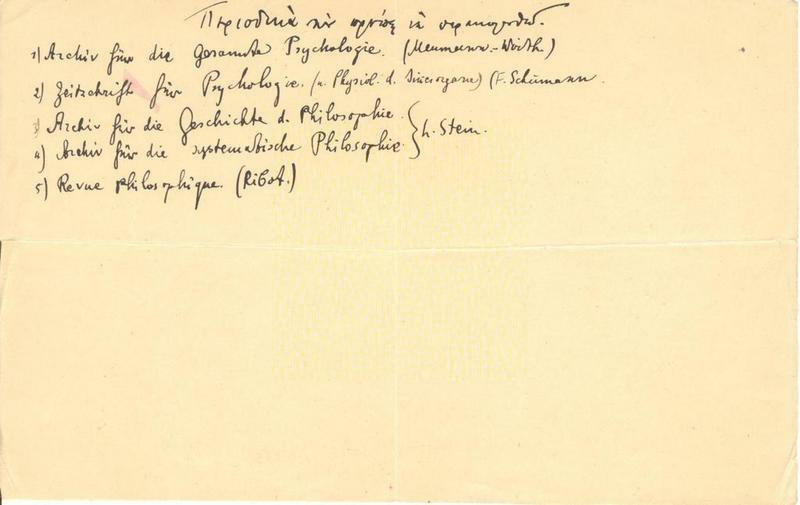 Περιοδικὰ τὰ νὰ
1) Archiv für die Gesamte Psychologie. (Meumann-Wirth.)
2) Zeitschrift für Psychologie. (u. Physiol. d. Sinnesorgane) (F. Schumann.
3) Archiv für die Geschichte d. Philosophie. } L. Stein.
4) Archiv für die systematische Philosophie.
5) Revue philosophique. (Ribot.)